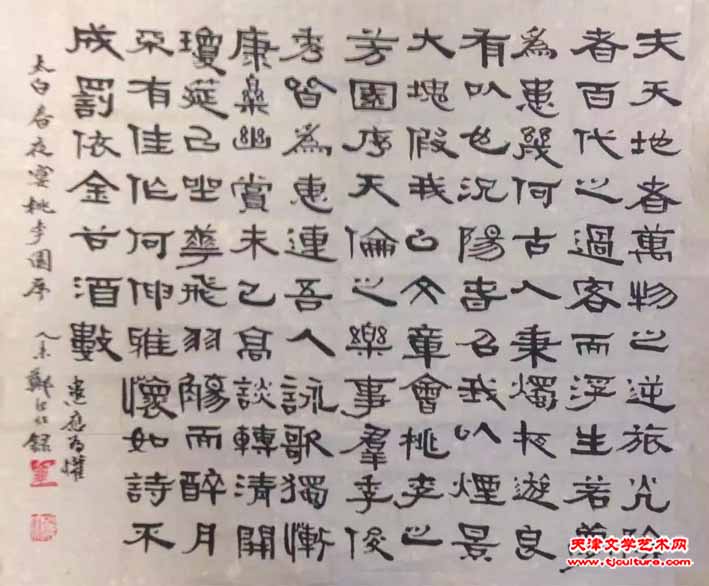 夫天地者萬物之逆旅光陰
者百代之過客而浮生若夢
為惠幾何古人秉燭夜遊良
有以也況陽春召我以煙景
大塊假我以文章會桃李之
芳園序天倫之樂事羣季俊
秀皆為惠連吾人詠歌獨慚
康樂幽賞未已高談轉清開
瓊筵已坐華飛羽觴而醉月
不有佳作何伸雅懷如詩不
成罰依金谷酒數
惠應為懽
太白春夜宴桃李園序 乙未 鄭 錄
天津文学艺术网
www.tjculture.com